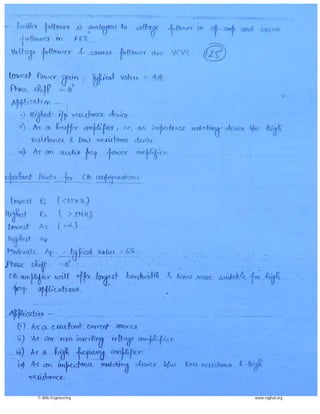 - Emitter follower is analogous to voltage follower in op-amp and source
follower in FET.
Voltage follower & source follower are VCVS. (125)
lowest Power gain ; Typical value = 48
Phase shift - 0°
Application -
i) Highest i/p resistance device.
ii) As a buffer amplifier, i.e, an impedance matching device b/w high
resistance & low resistance device
iii) As an audio freq. power amplifier
Important Points for CB configuration:-
- lowest Ri (<100Ω)
Highest Ro ( > 1MΩ)
lowest AI
Highest AV
Moderate AP - typical value = 68
Phase shift - 0°
CB amplifier will offer largest bandwidth & hence more suitable for high
freq. applications.
Application -
(i) As a constant current source
ii) As an non inverting voltage amplifier
iii) As a high frequency amplifier
iv) As an impedance matching device b/w low resistance & high
resistance.
© Wiki Engineering www.raghul.org